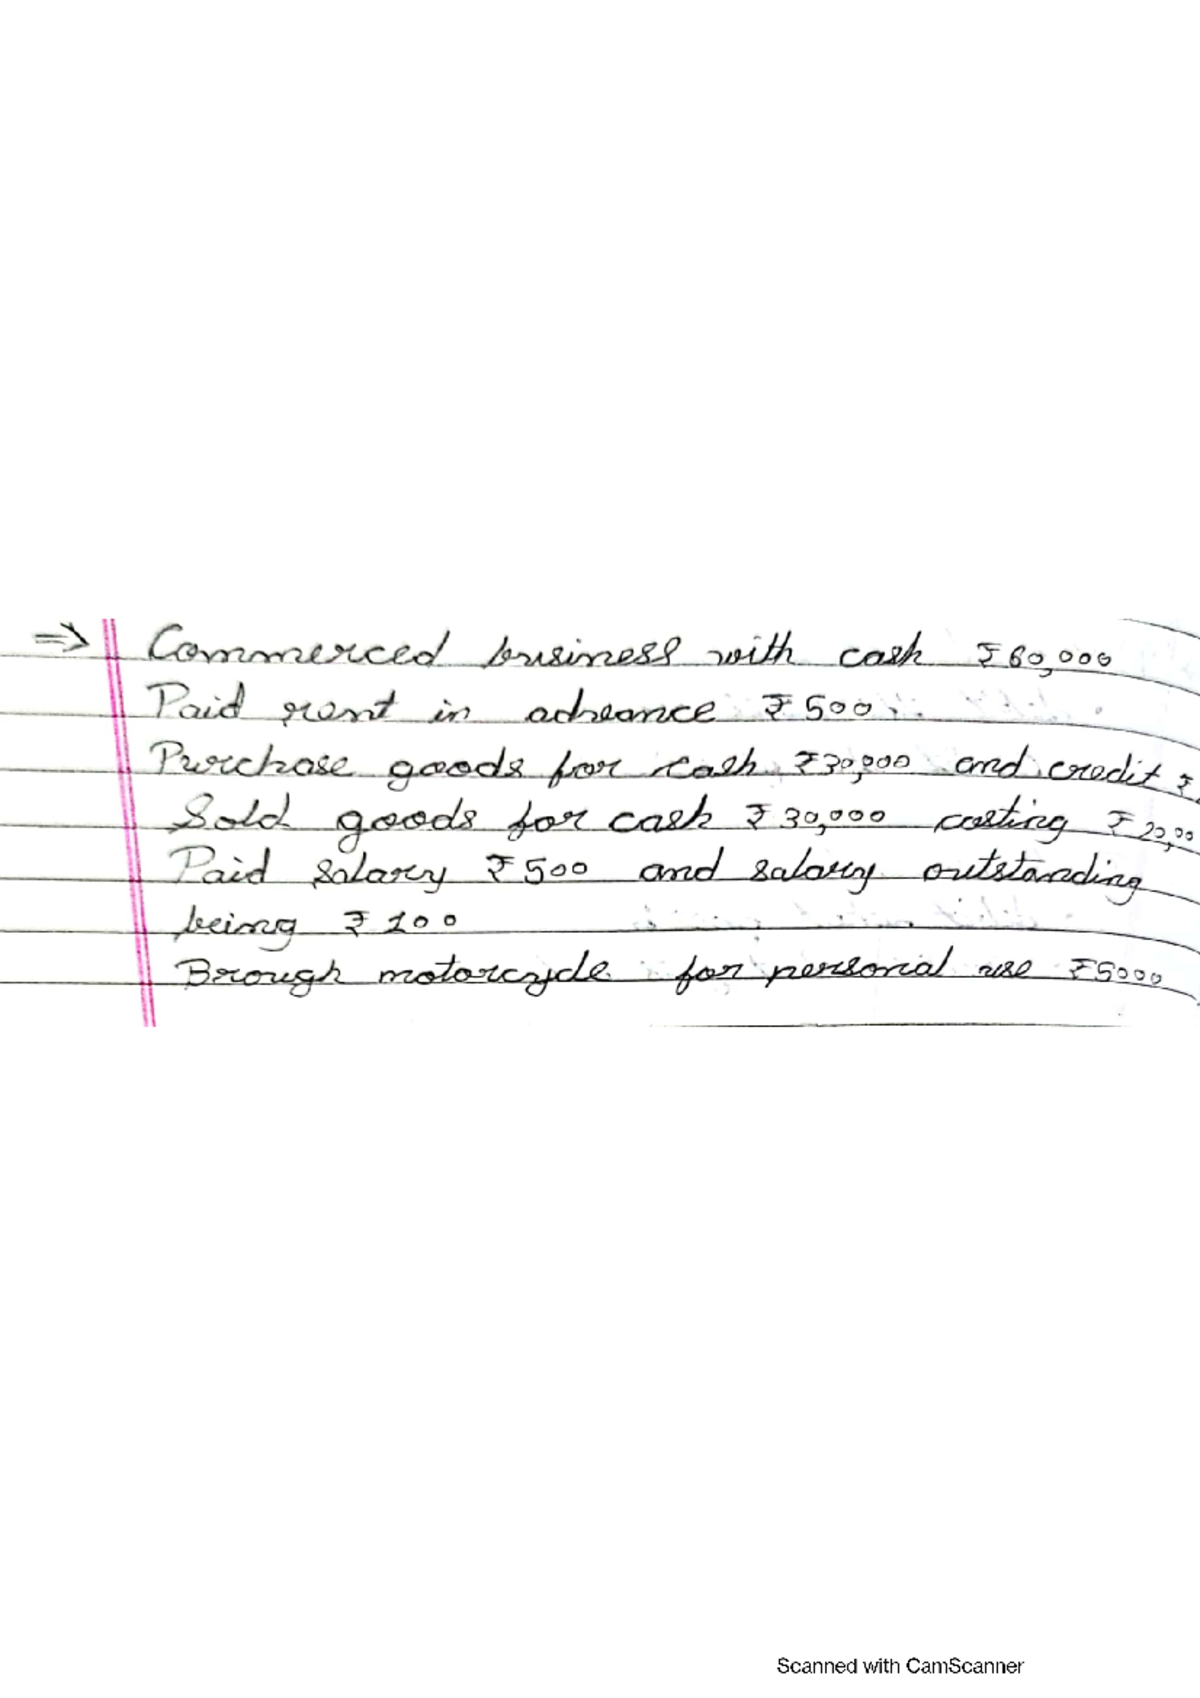 ⇒ Commerced business with cash ₹60,000
Paid rent in advance ₹500.
Purchase goods for cash ₹30,000 and credit ₹
Sold goods for cash ₹30,000 costing ₹20,00
Paid salary ₹500 and salary outstanding
being ₹100
Brough motorcycle for personal use ₹5000
Scanned with CamScanner